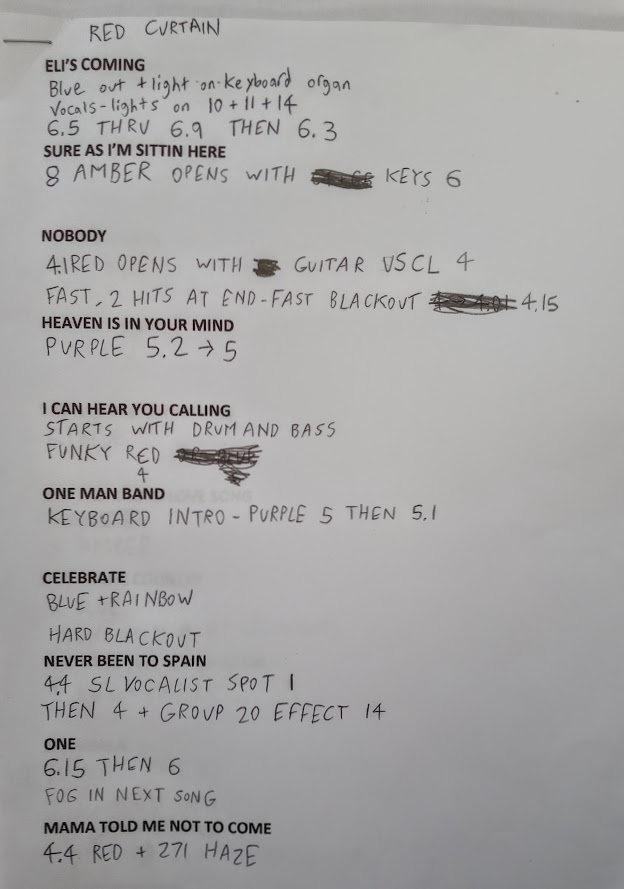 RED CURTAIN
ELI'S COMING
Blue out + light on keyboard organ
Vocals - lights on 10 + 11 + 14
6.5 THRU 6.9 THEN 6.3
SURE AS I'M SITTIN HERE
8 AMBER OPENS WITH KEYS 6
NOBODY
4.1 RED OPENS WITH GUITAR VSCL 4
FAST, 2 HITS AT END - FAST BLACKOUT 4.15
HEAVEN IS IN YOUR MIND
PURPLE 5.2 → 5
I CAN HEAR YOU CALLING
STARTS WITH DRUM AND BASS
FUNKY RED
4
ONE MAN BAND
KEYBOARD INTRO - PURPLE 5 THEN 5.1
CELEBRATE
BLUE + RAINBOW
HARD BLACKOUT
NEVER BEEN TO SPAIN
4.4 SL VOCALIST SPOT 1
THEN 4 + GROUP 20 EFFECT 14
ONE
6.15 THEN 6
FOG IN NEXT SONG
MAMA TOLD ME NOT TO COME
4.4 RED + 271 HAZE